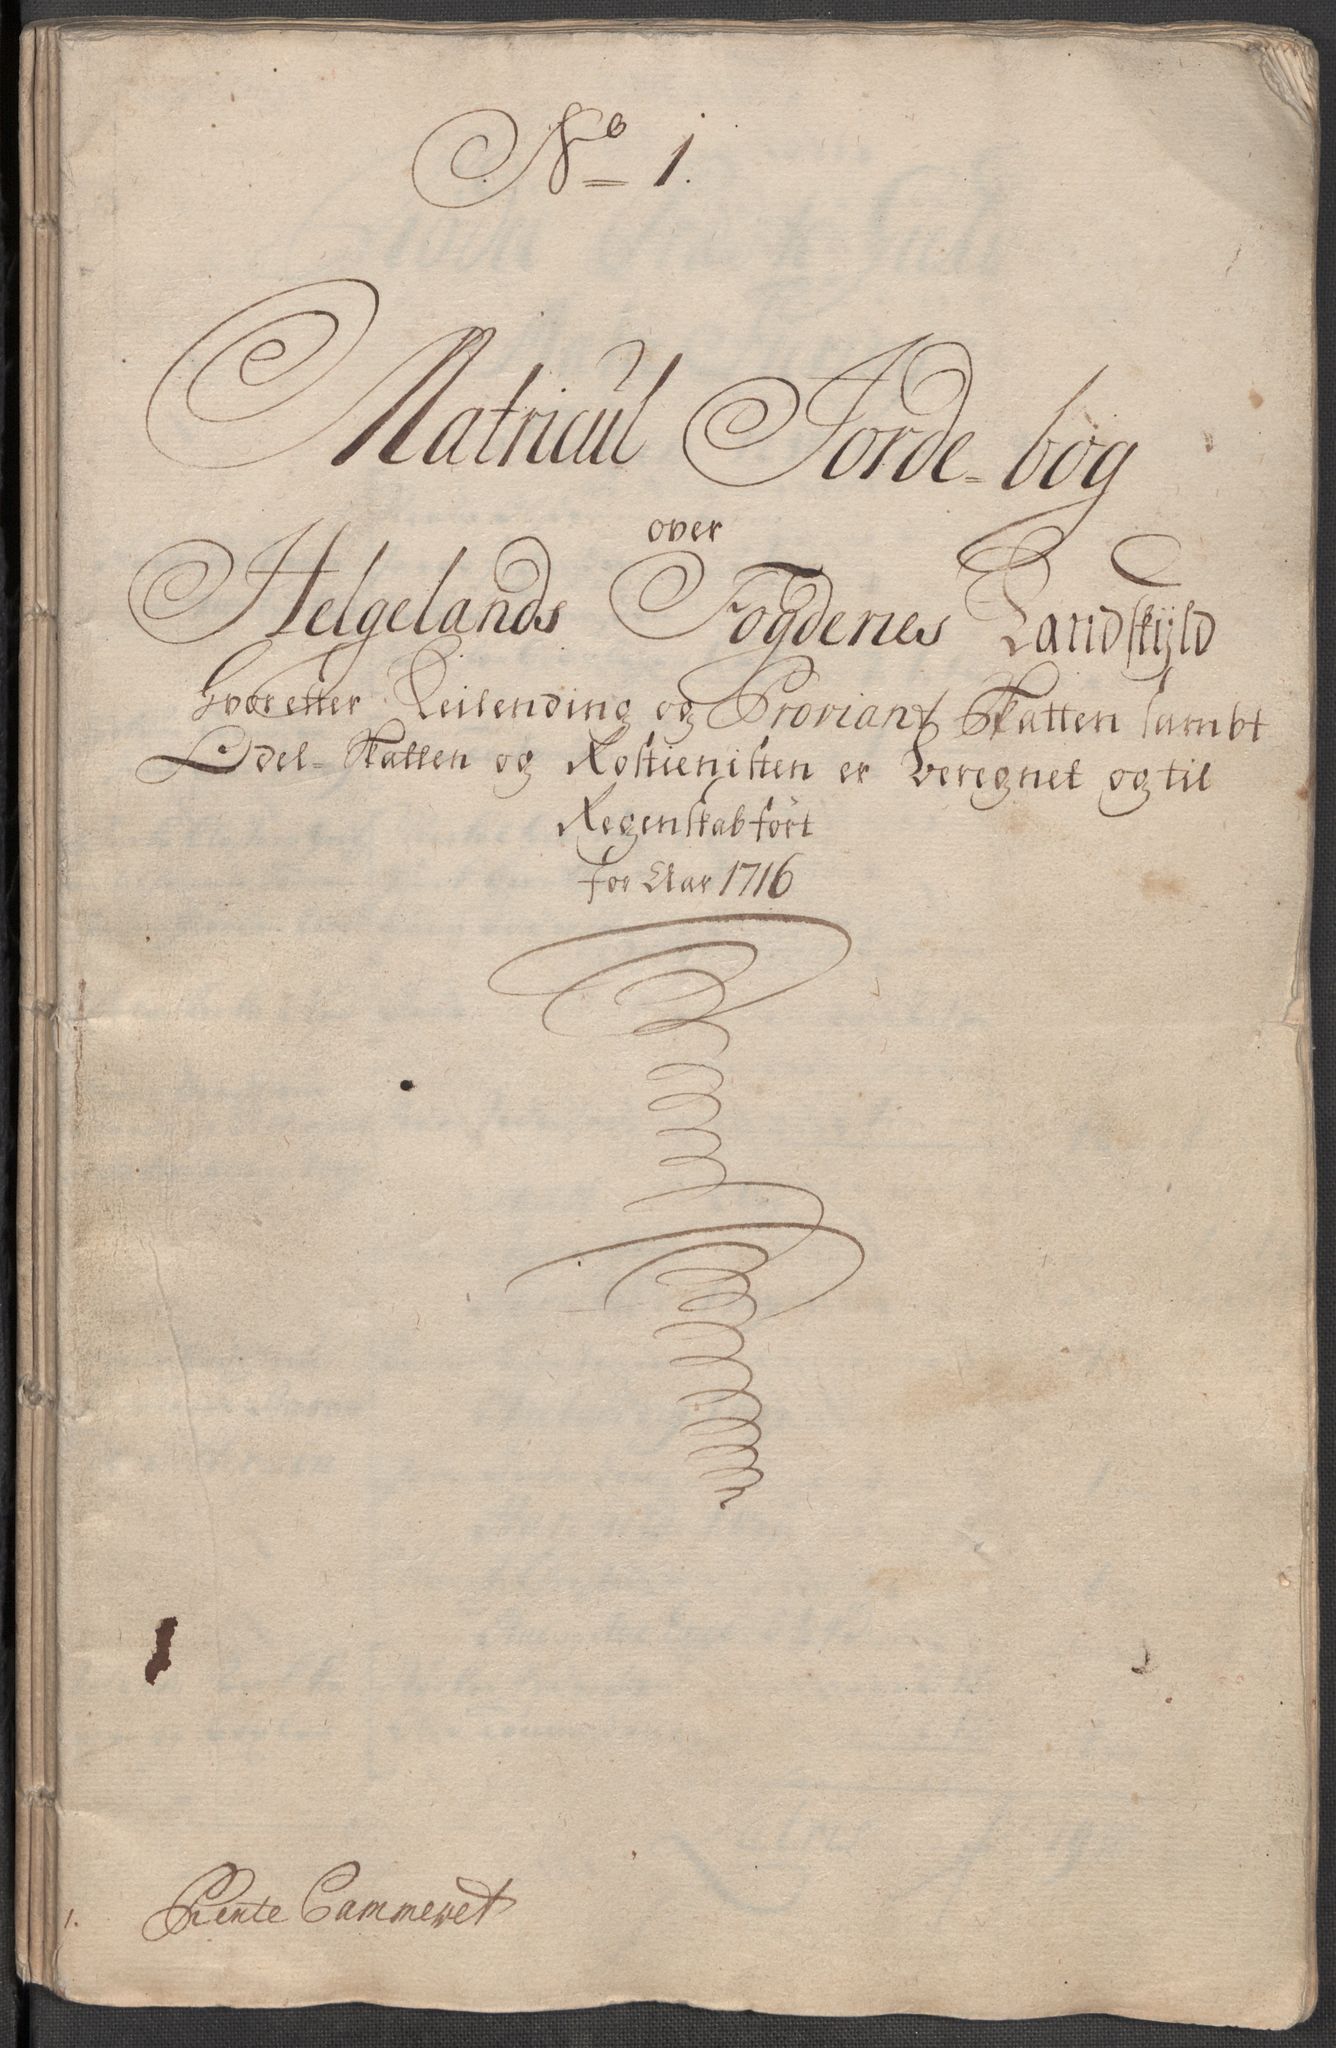 No 1.
Matricul Jorde-bog
over
Helgelands Fogderies Landskyld
Hvorefter Leilending og Proviant Skatten sambt
Odel-Skatten og Rostienisten er beregnet og til
Regenskab ført
for Aar 1716
1. Rente Cammeret